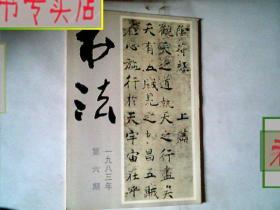 书专店
书法
一九八三年
第六期
陰符經 上篇
觀天之道執天之行盡矣
天有五賊見之者昌五賊
在心施行於天宇宙在乎